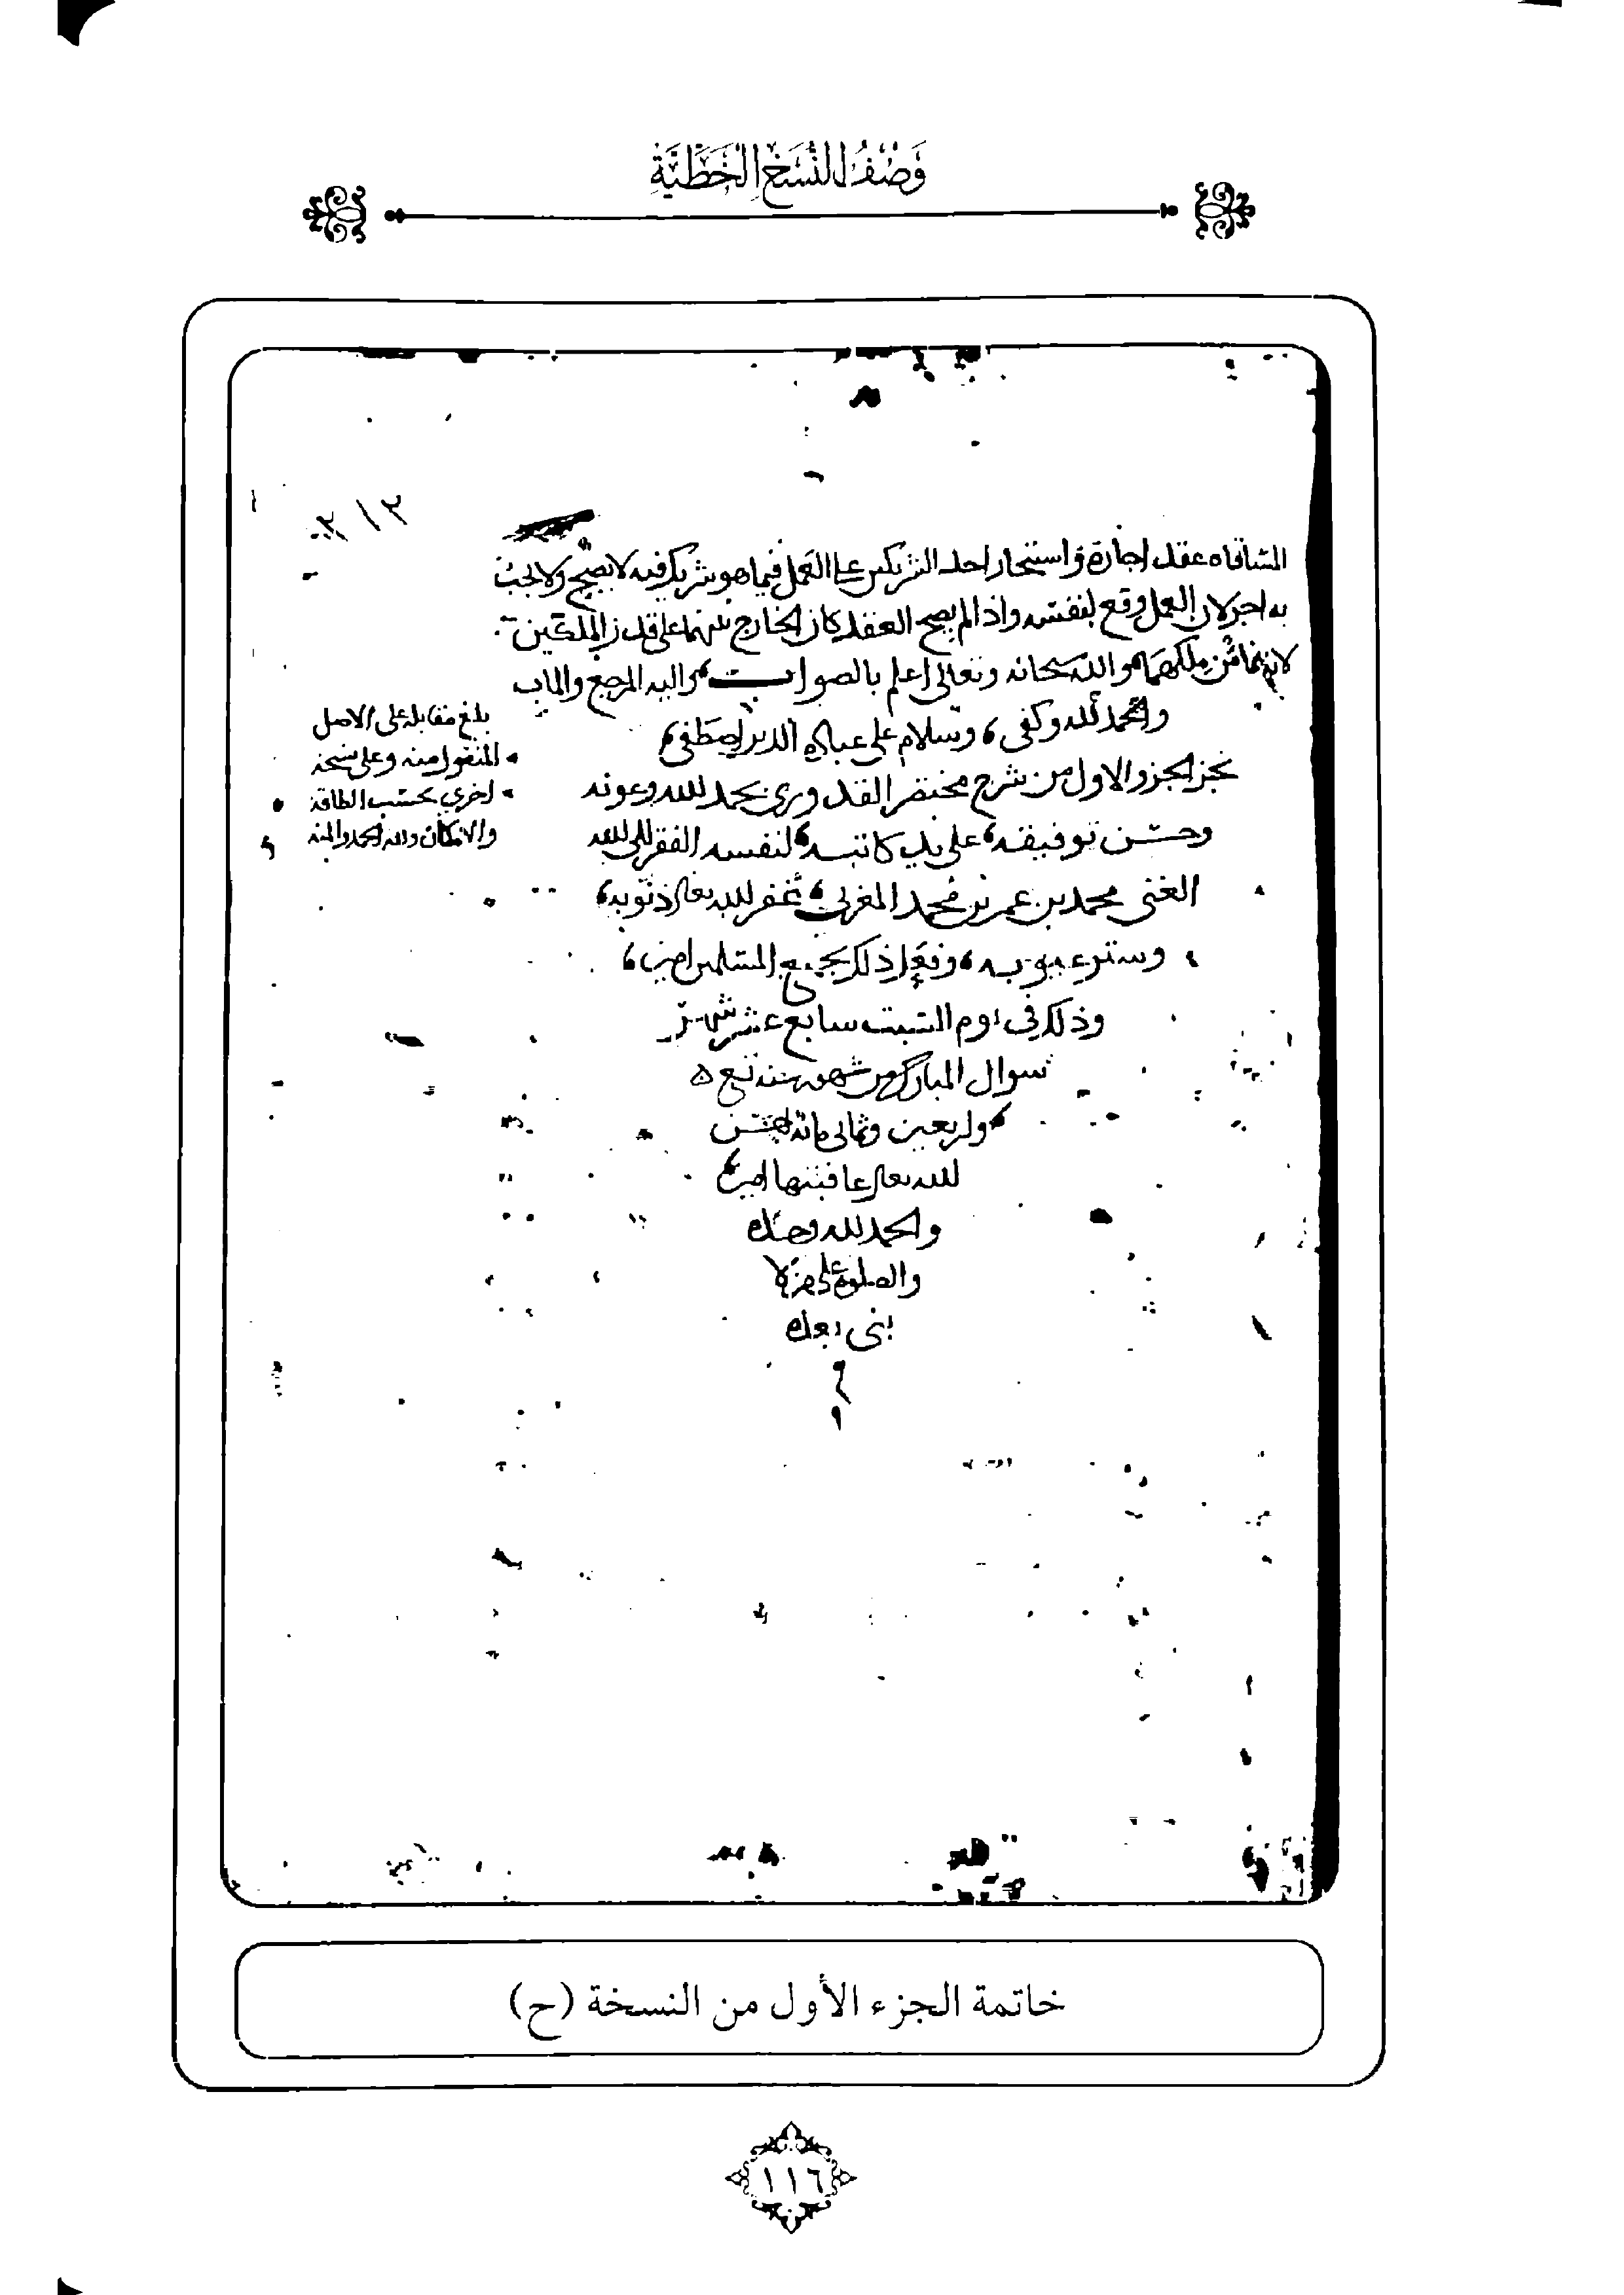 وَصْفُ النُّسَخِ الخَطِّيَّةِ
٢١٢
المساقاه عقد اجارة واستئجار احد الشريكين على العمل فيما هو شريك فيه لا يصح ولا يجب
به اجر لان العمل وقع لنفسه واذا لم يصح العقد كان الخارج بينهما على قدر الملكين
لانه نما من ملكهما والله سبحانه وتعالى اعلم بالصواب واليه المرجع والماب
والحمد لله وكفى وسلام على عباده الذين اصطفى
نجز الجزو الاول من شرح مختصر القدوري بحمد الله وعونه
وحسن توفيقه على يد كاتبه لنفسه الفقير الى الله
الغني محمد بن عمر بن محمد المغربي غفر الله تعالى ذنوبه
وستر عيوبه وفعل ذلك بجميع المسلمين امين
وذلك في يوم السبت سابع عشر شهر
شوال المبارك من شهور سنه تسع
واربعين وثماني مائة احسن
الله تعالى عاقبتها امين
والحمد لله وحده
والصلوة على من لا
نبي بعده
بلغ مقابلة على الاصل
المنقول منه وعلى نسخة
اخري بحسب الطاقة
والامكان ولله الحمد والمنه
خاتمة الجزء الأول من النسخة (ح)
١١٦